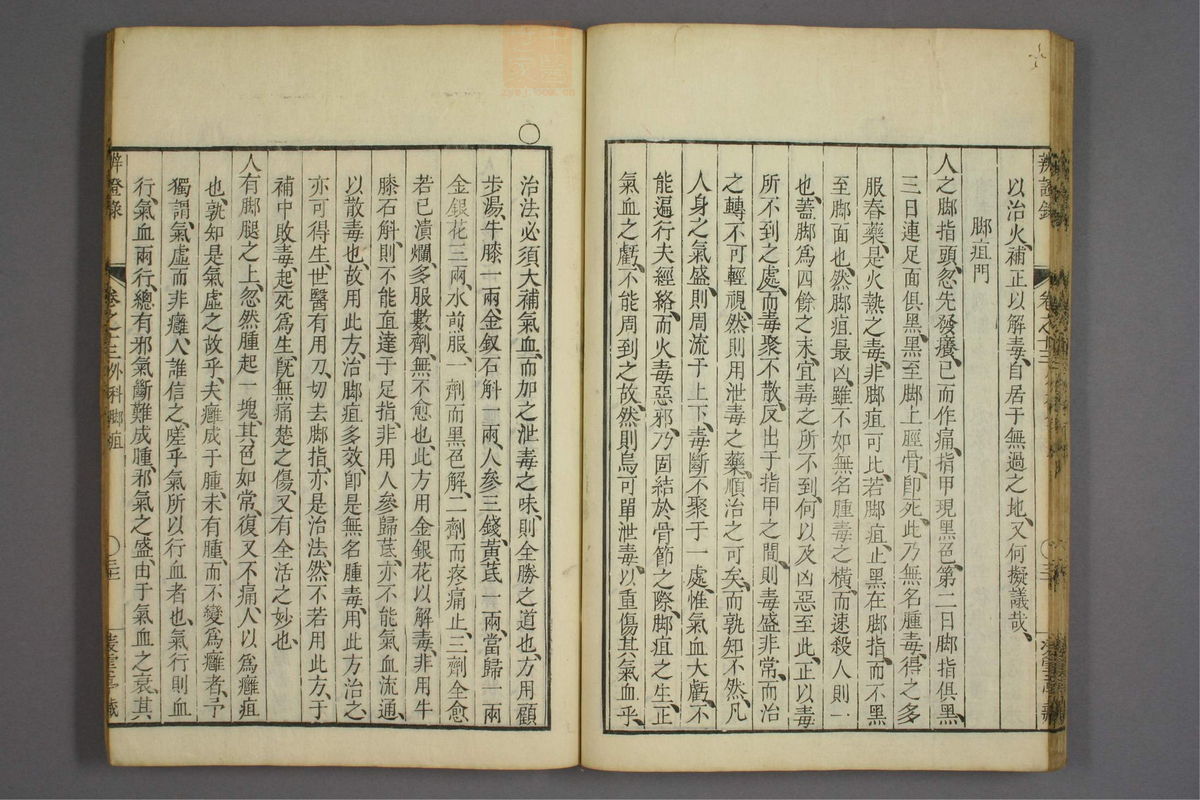 以治火、補正以解毒、自居于無過之地、又何擬議哉、
脚疽門
人之脚指頭、忽先發癢、已而作痛、指甲現黑色、第二日脚指俱黑、
三日連足面俱黑、黑至脚上脛骨、卽死、此乃無名腫毒、得之多
服春藥、是火熱之毒、非脚疽可比、若脚疽、止黑在脚指、而不黑
至脚面也、然脚疽最凶、雖不如無名腫毒之橫、而速殺人則一
也、蓋脚爲四餘之末、宜毒之所不到、何以及凶惡至此、正以毒
所不到之處、而毒聚不散、反出于指甲之間、則毒盛非常、而治
之轉不可輕視、然則用泄毒之藥、順治之可矣、而孰知不然、凡
人身之氣盛、則周流于上下、毒斷不聚于一處、惟氣血大虧、不
能遍行夫經絡、而火毒惡邪、乃固結於骨節之際、脚疽之生、正
氣血之虧、不能周到之故、然則烏可單泄毒、以重傷其氣血乎、
治法必須大補氣血、而加之泄毒之味、則全勝之道也、方用顧
步湯、牛膝一兩、金釵石斛一兩、人參三錢、黃芪一兩、當歸一兩
金銀花三兩、水煎服、一劑而黑色解、二劑而疼痛止、三劑全愈
若已潰爛、多服數劑、無不愈也、此方用金銀花以解毒、非用牛
膝石斛、則不能直達于足指、非用人參歸芪、亦不能氣血流通、
以散毒也、故用此方、治脚疽多效、卽是無名腫毒、用此方治之、
亦可得生、世醫有用刀切去脚指、亦是治法、然不若用此方、于
補中敗毒、起死爲生、旣無痛楚之傷、又有全活之妙也、
人有脚腿之上、忽然腫起一塊、其色如常、復又不痛、人以爲癰疽
也、孰知是氣虛之故乎、夫癰成于腫、未有腫、而不變爲癰者、予
獨謂、氣虛而非癰、人誰信之、嗟乎氣所以行血者也、氣行則血
行、氣血兩行、總有邪氣斷難成腫、邪氣之盛、由于氣血之衰、其
辨證錄
卷之十三 外科脚疽
〇